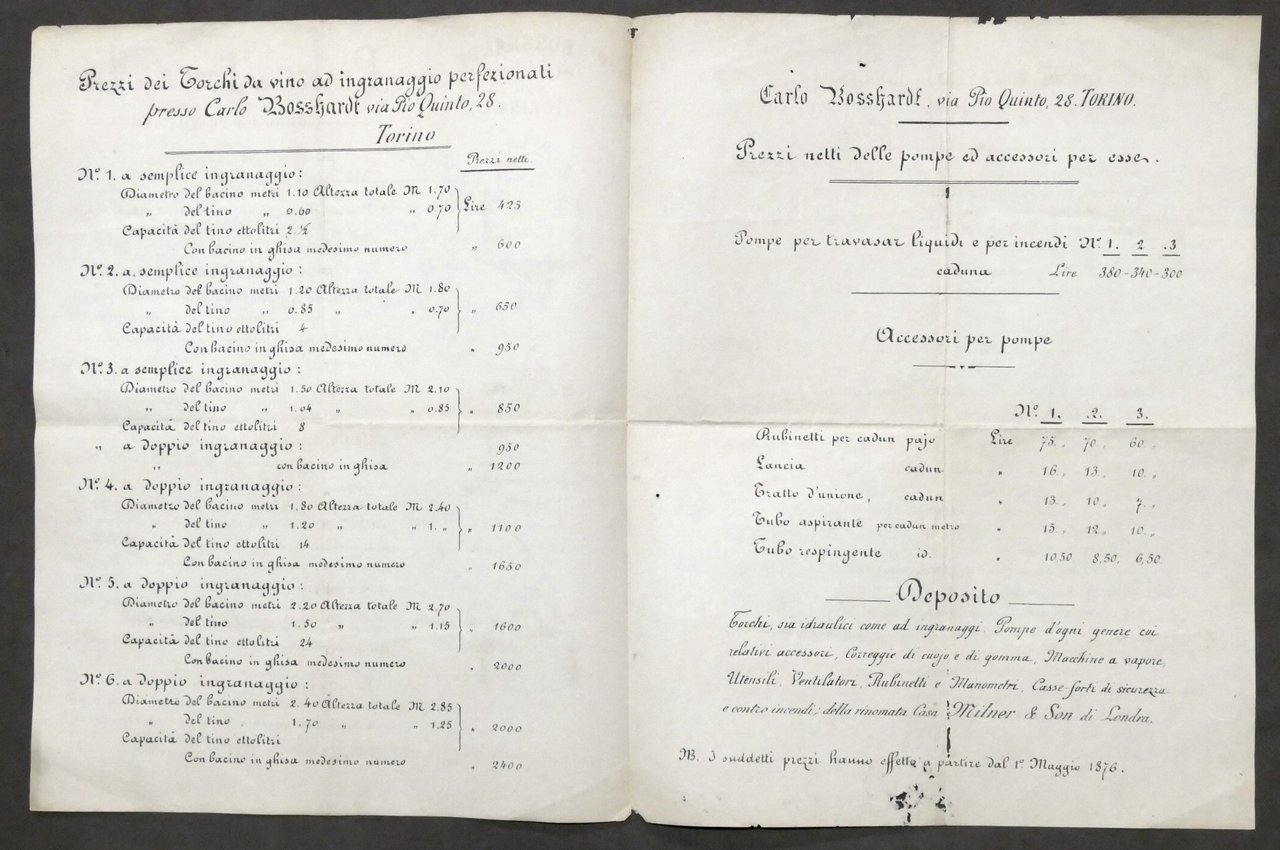 Prezzi dei Torchi da vino ad ingranaggio perfezionati
presso Carlo Bosshardt via Pio Quinto, 28.
Torino
Prezzi netti.
Nº. 1. a semplice ingranaggio:
Diametro del bacino metri 1.10 Altezza totale M 1.70
„ del tino „ 0.60 „ 0.70 Lire 425
Capacità del tino ettolitri 2 ½
Con bacino in ghisa medesimo numero „ 600
Nº. 2. a semplice ingranaggio:
Diametro del bacino metri 1.20 Altezza totale M 1.80
„ del tino „ 0.85 „ „ 0.70 „ 650
Capacità del tino ettolitri 4
Con bacino in ghisa medesimo numero „ 950
Nº. 3. a semplice ingranaggio:
Diametro del bacino metri 1.50 Altezza totale M 2.10
„ del tino „ 1.04 „ „ 0.85 „ 850
Capacità del tino ettolitri 8
„ a doppio ingranaggio: 950
„ con bacino in ghisa „ 1200
Nº. 4. a doppio ingranaggio:
Diametro del bacino metri 1.80 Altezza totale M 2.40
„ del tino „ 1.20 „ „ 1. „ „ 1100
Capacità del tino ettolitri 14
Con bacino in ghisa medesimo numero „ 1650
Nº. 5. a doppio ingranaggio:
Diametro del bacino metri 2.20 Altezza totale M 2.70
„ del tino 1.50 „ „ 1.15 „ 1600
Capacità del tino ettolitri 24
Con bacino in ghisa medesimo numero „ 2000
Nº. 6. a doppio ingranaggio:
Diametro del bacino metri 2.40 Altezza totale M 2.85
„ del tino 1.70 „ „ 1.25 „ 2000
Capacità del tino ettolitri
Con bacino in ghisa medesimo numero „ 2400
Carlo Bosshardt. via Pio Quinto, 28. TORINO.
Prezzi netti delle pompe ed accessori per esse.
Pompe per travasar liquidi e per incendi Nº. 1. 2 .3
caduna Lire 380-340-300
Accessori per pompe
Nº. 1. .2. 3.
Rubinetti per cadun pajo Lire 75. „ 70 „ 60 „
Lancia cadun „ 16. „ 13. „ 10. „
Tratto d'unione, cadun „ 13. „ 10. „ 7. „
Tubo aspirante per cadun metro „ 15. „ 12 „ 10. „
Tubo respingente id. „ 10,50 8,50, 6,50
Deposito
Torchi, sia idraulici come ad ingranaggi. Pompe d'ogni genere coi
relativi accessori, Correggie di cuojo e di gomma, Macchine a vapore,
Utensili, Ventilatori, Rubinetti e Manometri, Casse-forti di sicurezza
e contro incendi; della rinomata Casa Milner & Son di Londra.
NB. I suddetti prezzi hanno effetto a partire dal 1º. Maggio 1876.